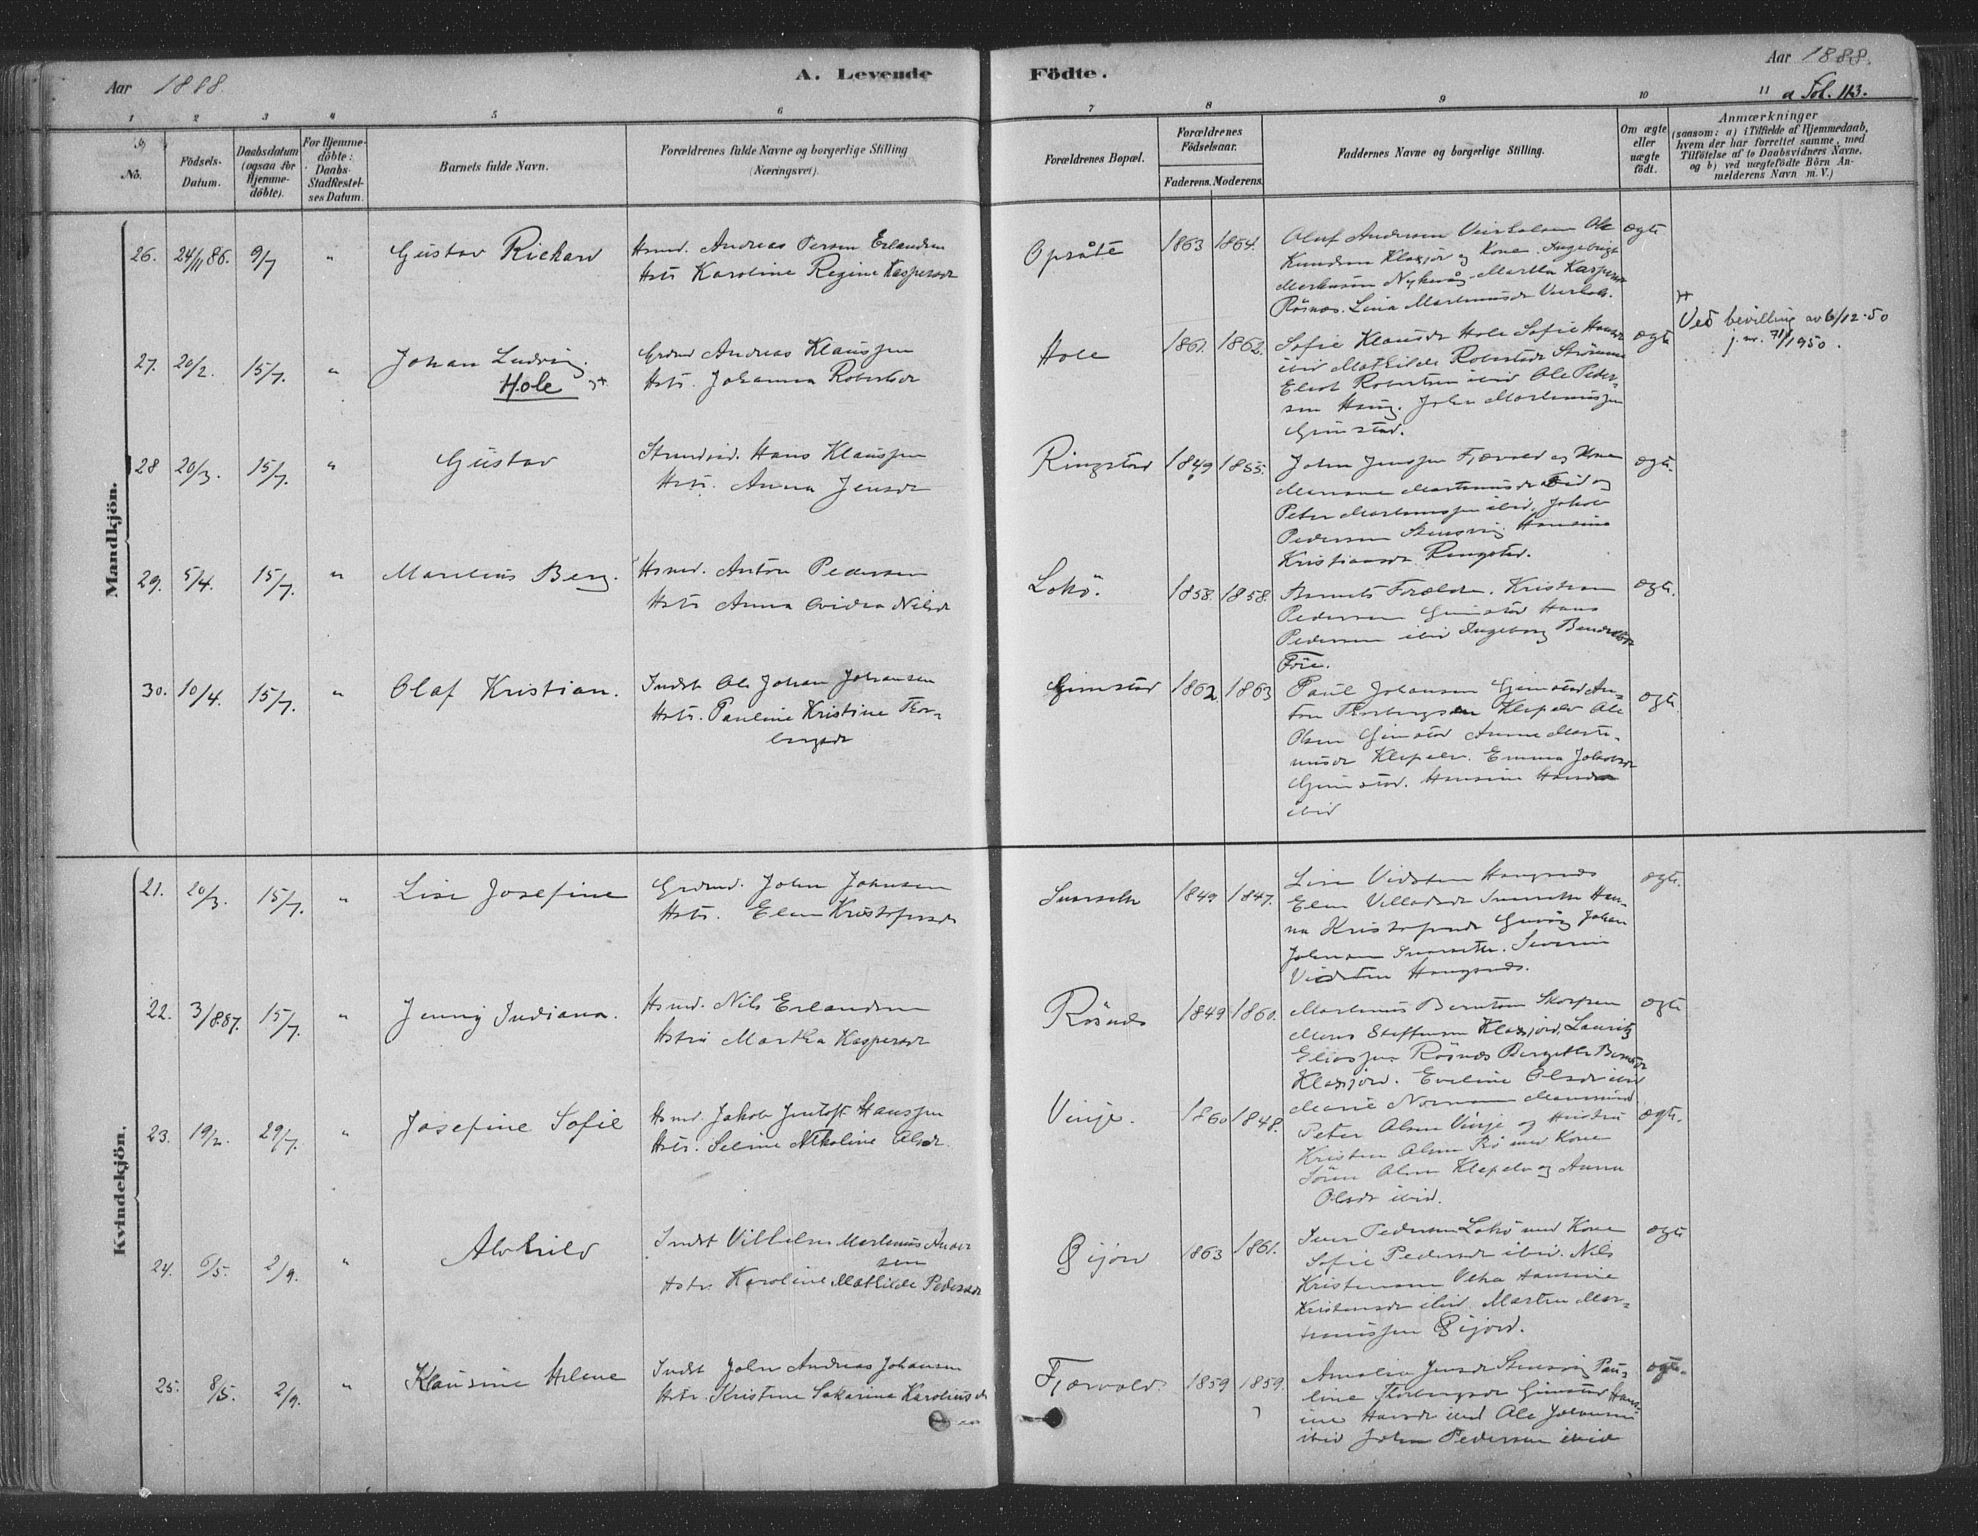 Aar 1888.
A. Levende
Födte.
Aar 1888.
a Fol. 113.
1 2 3 4 5 6 7 8 9 10 11
No.
Födsels-
Datum.
Daabsdatum
(ogsaa for
Hjemme-
döbte).
For Hjemme-
döbte:
Daabs-
Stadfestel-
ses Datum.
Barnets fulde Navn.
Forældrenes fulde Navne og borgerlige Stilling
(Næringsvei).
Forældrenes Bopæl.
Forældrenes
Födselsaar.
Faderens. Moderens.
Faddernes Navne og borgerlige Stilling.
Om ægte
eller
uægte
födt.
Anmærkninger
(saasom: a) i Tilfælde af Hjemmedaab,
hvem der har forrettet samme, med
Tilföielse af to Daabsvidners Navne,
og b) ved uægtefödte Börn An-
melderens Navn m. V.)
Mandkjön.
26. 24/11 86. 9/7 " Gustav Rickard
Hsmd. Andreas Person Erlandsen
Hstr Karoline Regine Kaspersdr
Opsåte 1863 1864.
Oluf Andersen Ole
Knudsen Klaxjor og Kone. Ingebrigt
Markussen Nykvåg Martha Kaspersdr
Rösnæs. Lina Martinusdr
ægte
27. 20/2. 15/7. " Johan Ludvig
Hole
Grdmd Andreas Klaussen
Hstr. Johanna Robertsdr
Hole 1861. 1862.
Sofie Klausdr Hole Sofie Hansdr
ibid Mathilde Robertsdr Strömme
Eliot Robertsen ibid Ole Peder-
sen Haug. John Martinussen
Gimstad.
ægte
Ved bevilling av 6/12-50
j. nr. 71/1950.
28 20/3. 15/7. " Gustav
Strandsid. Hans Klaussen
Hstr. Anna Jensdr
Ringstad 1849 1855.
John Jenssen Fjærvold og Kone
Martinusdr ibid og
Peter Martinussen ibid, Jakob
Pedersen Stensvig Hansine
Kristiansdr Ringstad.
ægte.
29. 5/4. 15/7. " Marelius Berg.
Hsmd. Anton Pedersen
Hstr Anna Ovidia Nilsdr
Lokö. 1858. 1858.
Barnets Forældre. Kristian
Pedersen Gimstad Hans
Pedersen ibid Ingeborg
Före.
ægte.
30. 10/4. 15/7. " Olaf Kristian.
Indst Ole Johan Johansen
Hstr. Pauline Kristine Thor-
bergsdr
Gimstad 1862 1863
Paul Johansen Gimstad An-
ton Thorbergsen Klepelv Ole
Olsen Gimstad Anne Marti-
nusdr Klepelv. Emma Jakobsdr
Gimstad. Hansine Hansdr
ibid
ægte.
Kvindekjön.
21. 20/3. 15/7. " Lise Josefine
Grdmd. John Johnsen
Hstr. Elen Kristofersdr
1849 1847.
Lise Vidsten Haugsnes
Elen Villadsdr Han-
na Kristofersdr Guvåg Johan
Johnsen Severin
Vidsten Haugsnes.
ægte.
22. 3/8 87. 15/7. " Jenny Indiana.
Hsmd. Nils Erlandsen
Hstru Martha Kaspersdr
Rösnæs 1849 1860.
Martinus Berntsen Skorpen
Mons Steffensen Klaxjord, Laurits
Eliassen Rösnæs Bergithe
Klaxjord. Eveline Olsdr ibid
ægte
23. 19/2. 29/7. " Josefine Sofie
Hsmd. Jakob Jentoft Hanssen
Hstr. Seline Nikoline Olsdr.
Vinje. 1860 1848.
Marie
Peter Olsen Vinje og Hustru
Kristen Olsen Bö med Kone
Sören Olsen Klepelv og Anna
Olsdr ibid.
ægte.
24. 6/5. 2/9. " Alvhild
Indst Vilhelm Martinus Ander
sen
Hstr. Karoline Mathilde Pedersdr
Øijord 1863 1861.
Iver Pedersen Lokö med Kone
Sofie Pedersdr ibid. Nils
Kristensen Hansine
Kristensdr ibid. Martin Mar-
tinussen Øijord.
ægte
25. 8/5. 2/9. " Klausine Helene
Indst John Andreas Johansen
Hstr. Kristine Sakarina Karoliusdr
Fjærvold. 1859 1859.
Amalia Jensdr Stensvig Pau-
line Thorbergsdr Gimstad Hans-
ine Hansdr ibid Ole Johansen
ibid John Pedersen ibid
ægte.